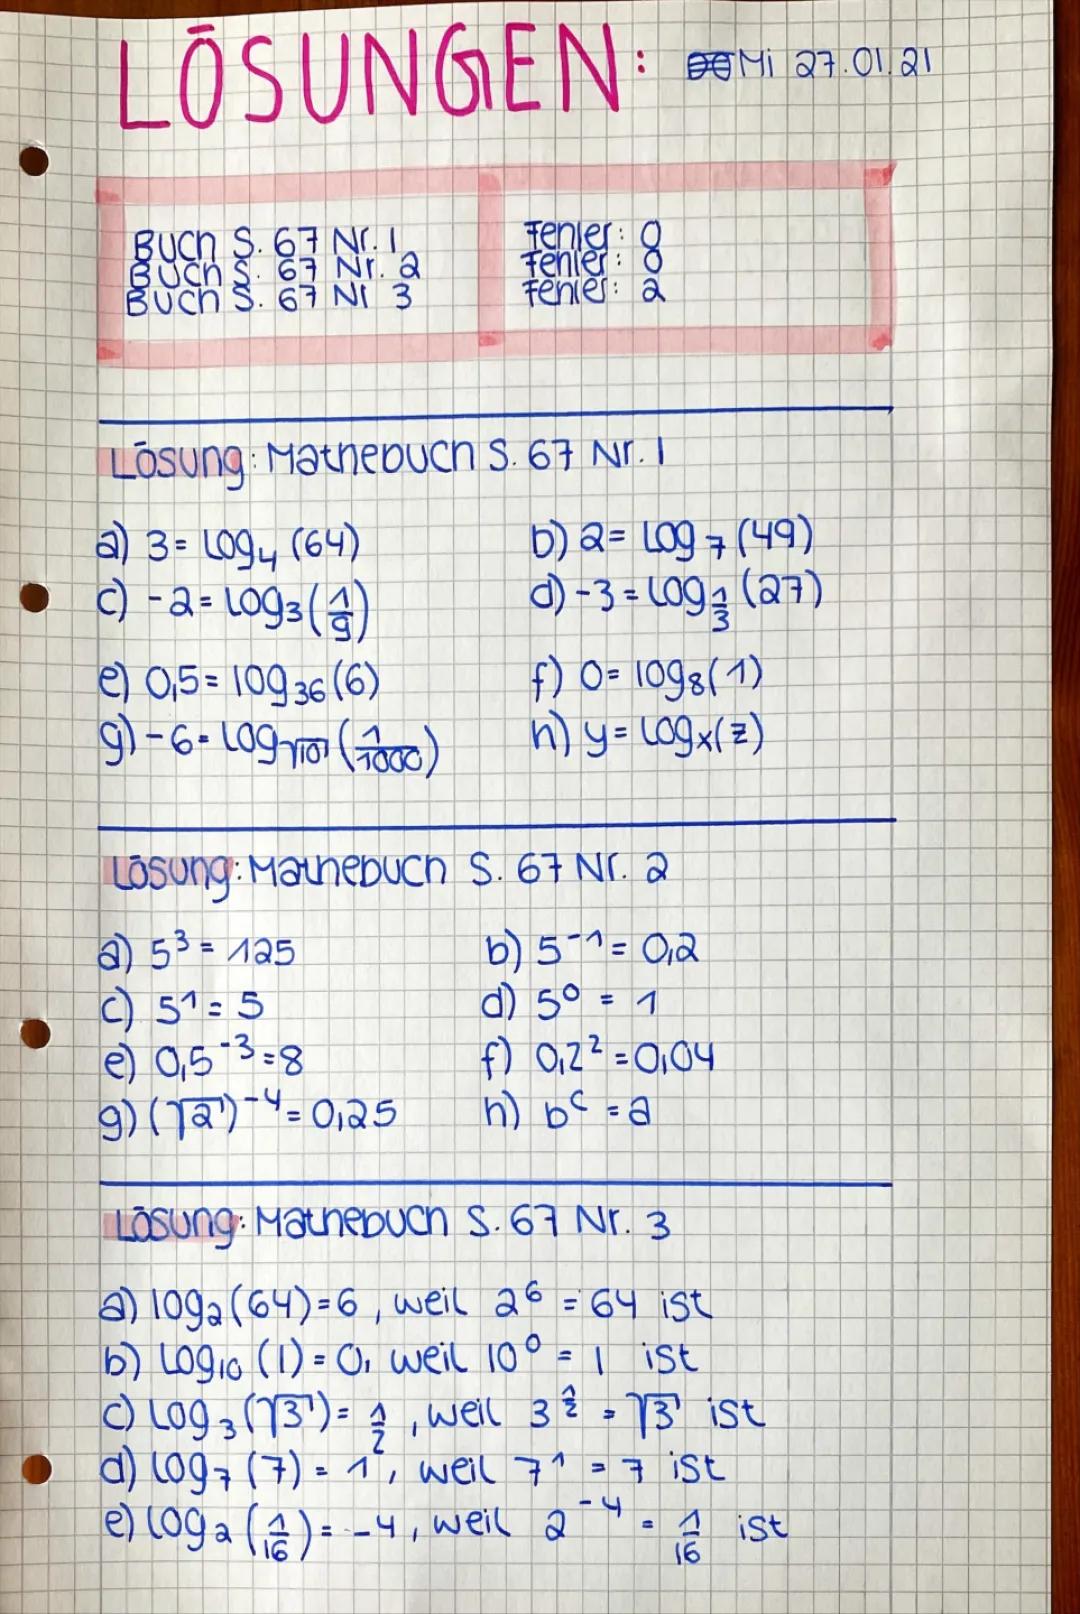 LÖSUNGEN: Mi 27.01.21
Buch S. 67 Nr. 1 Fehler: 0
Buch S. 67 Nr. 2 Fehler: 0
Buch S. 67 Nr 3 Fehler: 2
Lösung: Mathebuch S. 67 Nr. 1
a) 3 = log₄ (64) b) 2 = log₇ (49)
c) -2 = log₃ (1/9) d) -3 = log_1/3 (27)
e) 0,5 = log₃₆ (6) f) 0 = log₈ (1)
g) -6 = log_√10 (1/1000) h) y = logₓ(z)
Lösung: Mathebuch S. 67 Nr. 2
a) 5³ = 125 b) 5⁻¹ = 0,2
c) 5¹ = 5 d) 5⁰ = 1
e) 0,5⁻³ = 8 f) 0,2² = 0,04
g) (√2)⁻⁴ = 0,25 h) bᶜ = a
Lösung: Mathebuch S. 67 Nr. 3
a) log₂ (64) = 6, weil 2⁶ = 64 ist
b) log₁₀ (1) = 0, weil 10⁰ = 1 ist
c) log₃ (√3) = 1/2, weil 3^1/2 = √3 ist
d) log₇ (7) = 1, weil 7¹ = 7 ist
e) log₂ (1/16) = -4, weil 2⁻⁴ = 1/16 ist